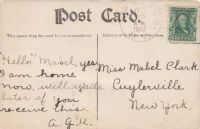 Post Card.
This space may be used for correspondence.
"Hello" Mabel, yes
I am home
now, will write
later if you
receive this.
A.G.K.
Miss Mabel Clark
Cuylerville
New York.